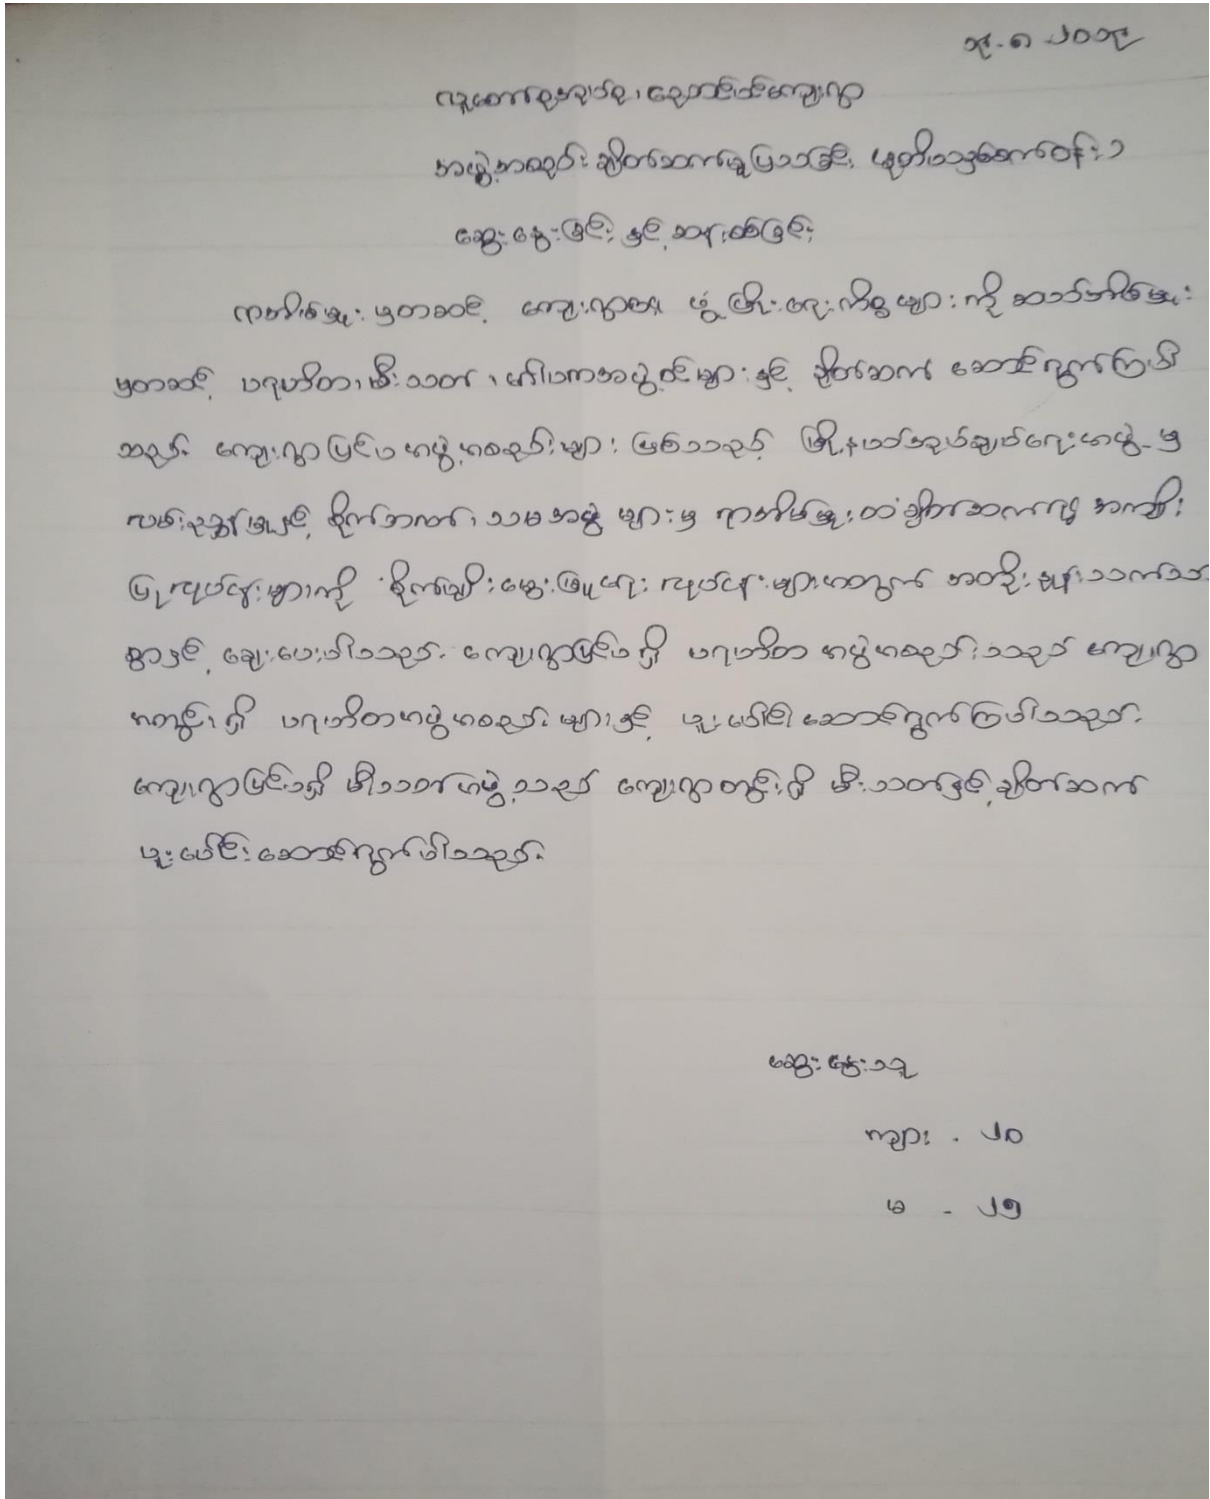 ၁၉.၈.၂၀၁၉
ကျေးရွာ
အဖွဲ့အစည်း ချိတ်ဆက်မှုပြသခြင်း
ဆွေးနွေးခြင်း နှင့် ဆန်းစစ်ခြင်း
ရာအိမ်မှူးမှတဆင့် ကျေးရွာ၏ ဖွံ့ဖြိုးရေးကိစ္စများကို ဆယ်အိမ်မှူး
မှတဆင့် ပရဟိတ၊ မီးသတ်၊ အဖွဲ့ဝင်များနှင့် ချိတ်ဆက် ဆောင်ရွက်ကြပါ
သည်။ ကျေးရွာပြင်ပအဖွဲ့အစည်းများ ဖြစ်သည့် မြို့နယ်အုပ်ချုပ်ရေးအဖွဲ့မှ
လမ်းညွှန်မှုဖြင့် စိုက်ဘဏ်၊ သမအဖွဲ့များမှ ရာအိမ်မှူးထံချိတ်ဆက်၍ အကျိုး
ပြုလုပ်ငန်းများကို စိုက်ပျိုးမွေးမြူရေး လုပ်ငန်းများအတွက် အတိုးနှုန်းသက်သာ
စွာနှင့် ချေးပေးပါသည်။ ကျေးရွာပြင်ပရှိ ပရဟိတ အဖွဲ့အစည်းသည် ကျေးရွာ
အတွင်းရှိ ပရဟိတအဖွဲ့အစည်းများနှင့် ပူးပေါင်းဆောင်ရွက်ကြပါသည်။
ကျေးရွာပြင်ပရှိ မီးသတ်အဖွဲ့သည် ကျေးရွာတွင်းရှိ မီးသတ်နှင့် ချိတ်ဆက်
ပူးပေါင်းဆောင်ရွက်ပါသည်။
ဆွေးနွေးသူ
ကျား - ၂၀
မ - ၂၅